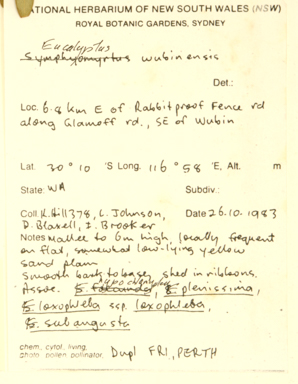 NATIONAL HERBARIUM OF NEW SOUTH WALES (NSW)
ROYAL BOTANIC GARDENS, SYDNEY
Eucalyptus
Symphyomyrtus wubinensis
Det.:
Loc. 6.8 km E of Rabbit proof Fence rd
along Glamoff rd., SE of Wubin
Lat. 30° 10 'S Long. 116° 58 'E, Alt. m
State: WA Subdiv.:
Coll. K. Hill 378, L. Johnson, Date 26.10.1983
D. Blaxell, I. Brooker
Notes Mallee to 6m high, locally frequent
on flat, somewhat low-lying yellow
sand plain
Smooth bark to base, shed in ribbons.
Assoc. E. plenissima,
E. loxophleba ssp. loxophleba,
E. subangusta
chem, cytol, living,
photo pollen pollinator, Dupl FRI, PERTH